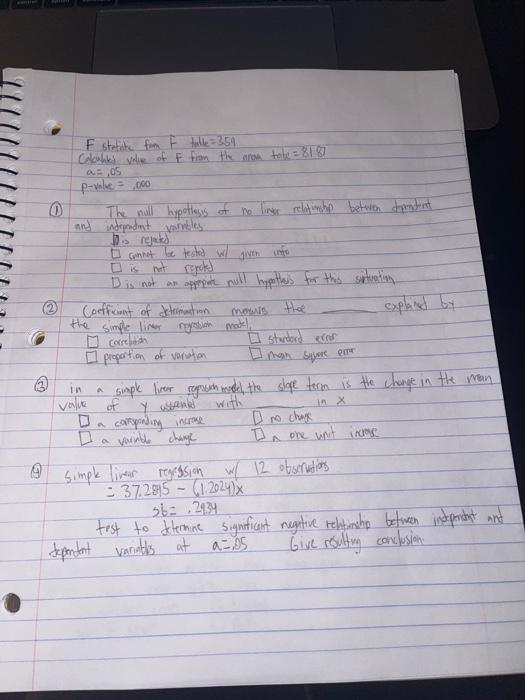 F statistic from F table = 3.59
Calculated value of F from the anova table = 81.87
a = .05
p-value = .000
① The null hypothesis of no linear relationship between dependent
and independent variables
☐ is rejected
☐ cannot be tested w/ given info
☐ is not rejected
☐ is not an appropriate null hypothesis for this situation
② Coefficient of determination measures the ______ explained by
the simple linear regression model.
☐ correlation ☐ standard error
☐ proportion of variation ☐ mean square error
③ in a simple linear regression model, the slope term is the change in the mean
value of y associated with ______ in x
☐ a corresponding increase ☐ no change
☐ a variable change ☐ a one unit increase
④ Simple linear regression w/ 12 observations
= 37.2895 - (1.2024)x
sb = .2934
test to determine significant negative relationship between independent and
dependent variables at a = .05 Give resulting conclusion.